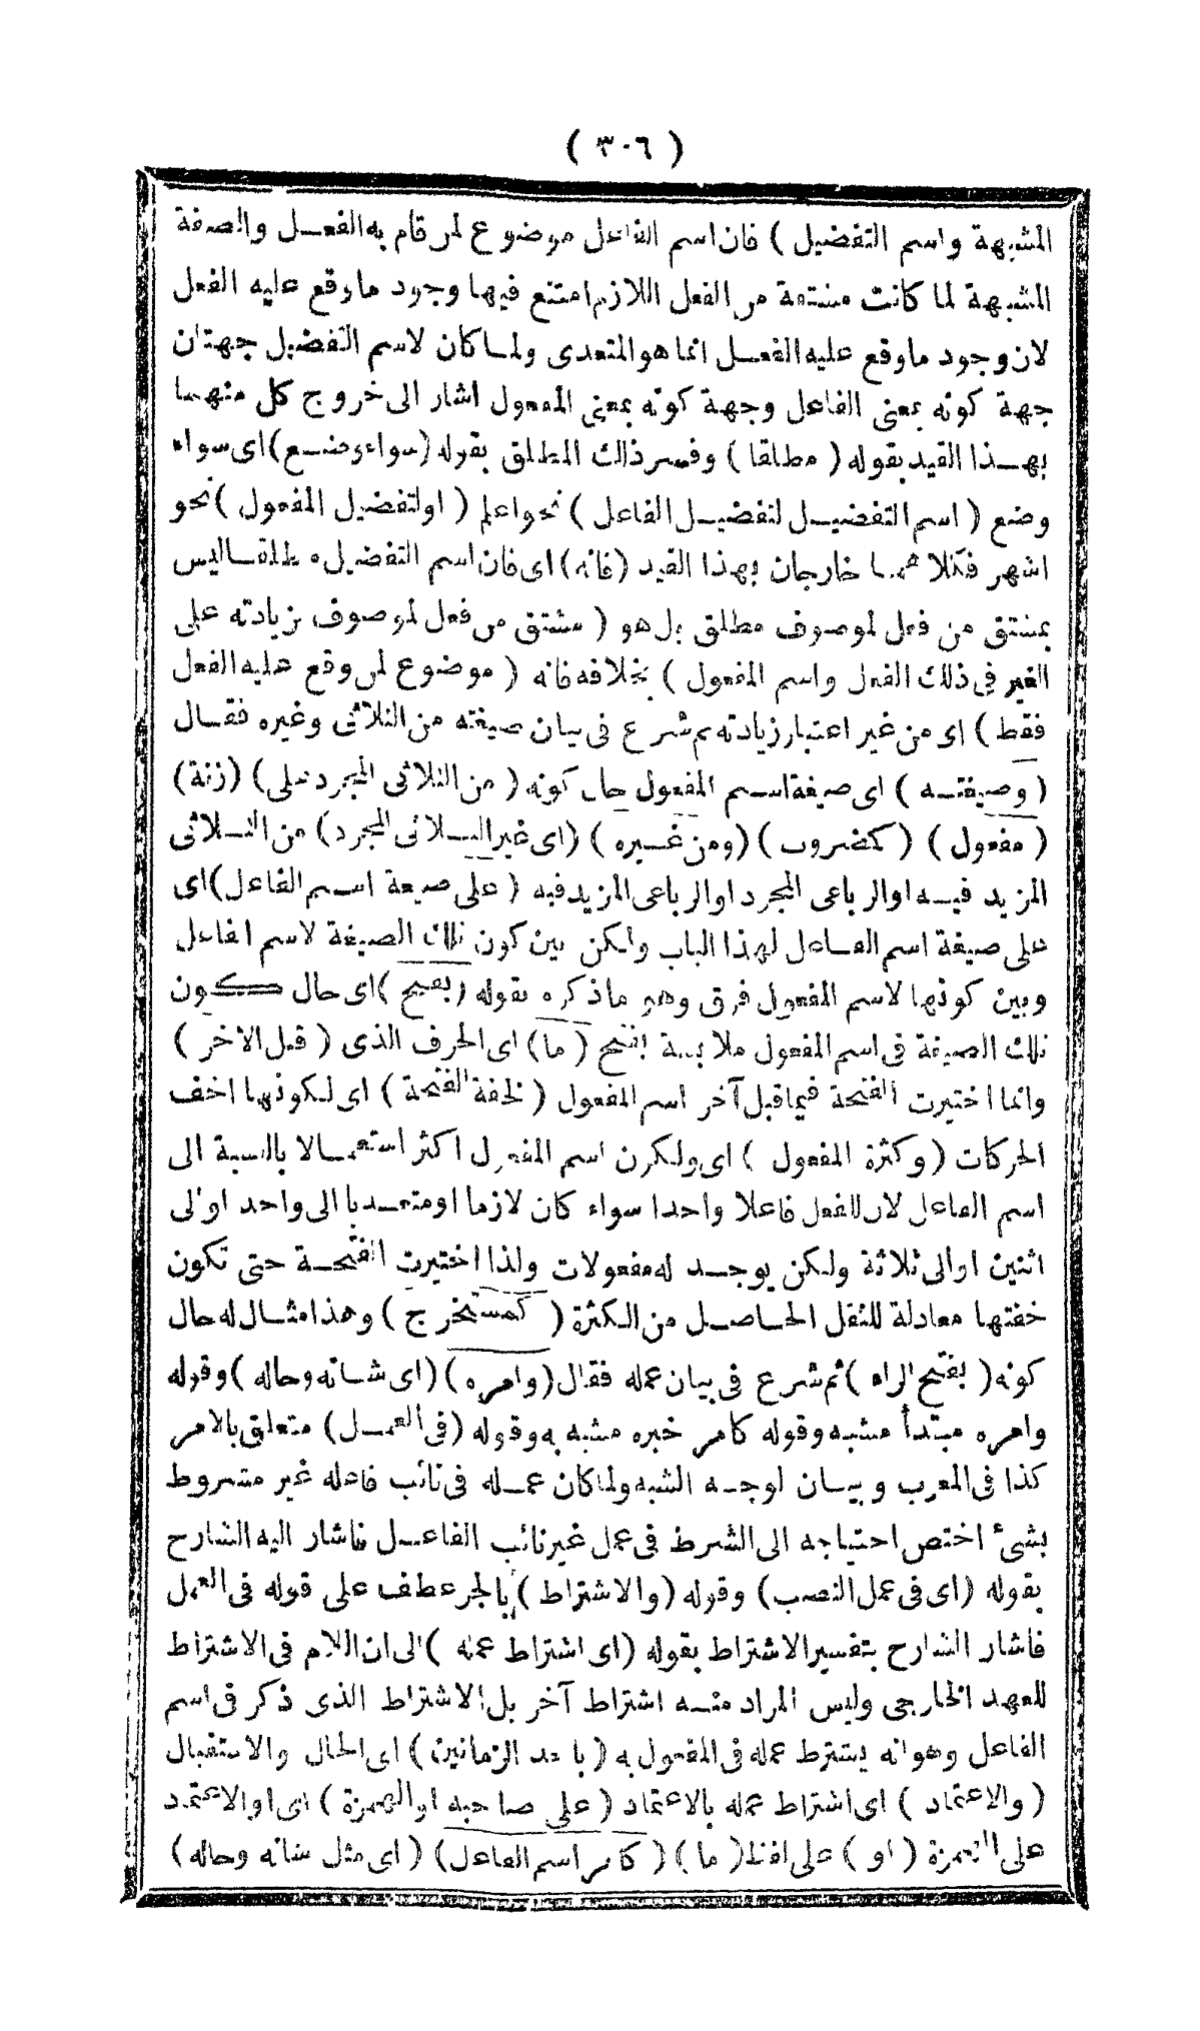 ( ٣٠٦ )
المشبهة واسم التفضيل ) فان اسم الفاعل موضوع لمن قام به الفعل والصفة
المشبهة لما كانت مشتقة من الفعل اللازم امتنع فيها وجود ما وقع عليه الفعل
لان وجود ما وقع عليه الفعل انما هو المتعدى ولما كان لاسم التفضيل جهتان
جهة كونه بمعنى الفاعل وجهة كونه بمعنى المفعول اشار الى خروج كل منهما
بهذا القيد بقوله ( مطلقا ) وفسر ذلك المطلق بقوله ( سواء وضع ) اى سواء
وضع ( اسم التفضيل لتفضيل الفاعل ) نحو اعلم ( او لتفضيل المفعول ) نحو
اشهر فكلاهما خارجان بهذا القيد ( فانه ) اى فان اسم التفضيل مطلقا ليس
بمشتق من فعل لموصوف مطلق بل هو ( مشتق من فعل لموصوف بزيادته على
الغير فى ذلك الفعل واسم المفعول ) بخلافه فانه ( موضوع لمن وقع عليه الفعل
فقط ) اى من غير اعتبار زيادته ثم شرع فى بيان صيغته من الثلاثى وغيره فقال
( وصيغته ) اى صيغة اسم المفعول حال كونه ( من الثلاثى المجرد على ) ( زنة )
( مفعول ) ( كمضروب ) ( ومن غيره ) ( اى غير الثلاثى المجرد ) من الثلاثى
المزيد فيه او الرباعى المجرد او الرباعى المزيد فيه ( على صيغة اسم الفاعل ) اى
على صيغة اسم الفاعل لهذا الباب ولكن بين كون تلك الصيغة لاسم الفاعل
وبين كونها لاسم المفعول فرق وهو ما ذكره بقوله ( بفتح ) اى حال كون
تلك الصيغة فى اسم المفعول ملابسة بفتح ( ما ) اى الحرف الذى ( قبل الآخر )
وانما اختيرت الفتحة فيما قبل آخر اسم المفعول ( لخفة الفتحة ) اى لكونها اخف
الحركات ( وكثرة المفعول ) اى ولكون اسم المفعول اكثر استعمالا بالنسبة الى
اسم الفاعل لان للفعل فاعلا واحدا سواء كان لازما او متعديا الى واحد او الى
اثنين او الى ثلاثة ولكن يوجد له مفعولات ولذا اختيرت الفتحة حتى تكون
خفتها معادلة للثقل الحاصل من الكثرة ( كمستخرج ) وهذا مثال له حال
كونه ( بفتح الراء ) ثم شرع فى بيان عمله فقال ( وامره ) ( اى شانه وحاله ) وقوله
وامره مبتدأ مشبه وقوله كامر خبره مشبه به وقوله ( فى العمل ) متعلق بالامر
كذا فى المعرب وبيان لوجه الشبه ولما كان عمله فى نائب فاعله غير مشروط
بشئ اختص احتياجه الى الشرط فى عمل غير نائب الفاعل فاشار اليه الشارح
بقوله ( اى فى عمل النصب ) وقوله ( والاشتراط ) بالجر عطف على قوله فى العمل
فاشار الشارح بتفسير الاشتراط بقوله ( اى اشتراط عمله ) الى ان اللام فى الاشتراط
للعهد الخارجى وليس المراد منه اشتراط آخر بل الاشتراط الذى ذكر فى اسم
الفاعل وهو انه يشترط عمله فى المفعول به ( باحد الزمانين ) اى الحال والاستقبال
( والاعتماد ) اى اشتراط عمله بالاعتماد ( على صاحبه او الهمزة ) اى او الاعتماد
على الهمزة ( او ) على لفظ ( ما ) ( كامر اسم الفاعل ) ( اى مثل شانه وحاله )